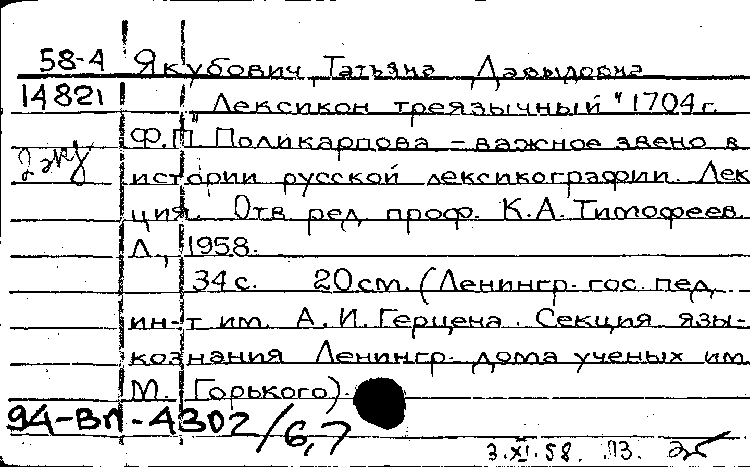 58-4 Якубович, Татьяна Давыдовна
14821 "Лексикон треязычный" 1704 г.
Ф.П. Поликарпова - важное звено в
2 экз истории русской лексикографии. Лек
ция. Отв. ред. проф. К.А. Тимофеев.
Л., 1958.
34 с. 20 см. (Ленингр. гос. пед.
ин-т им. А.И. Герцена. Секция язы-
кознания Ленингр. дома ученых им.
М. Горького).
94-ВЛ-4302/6,7
3.XI.58.